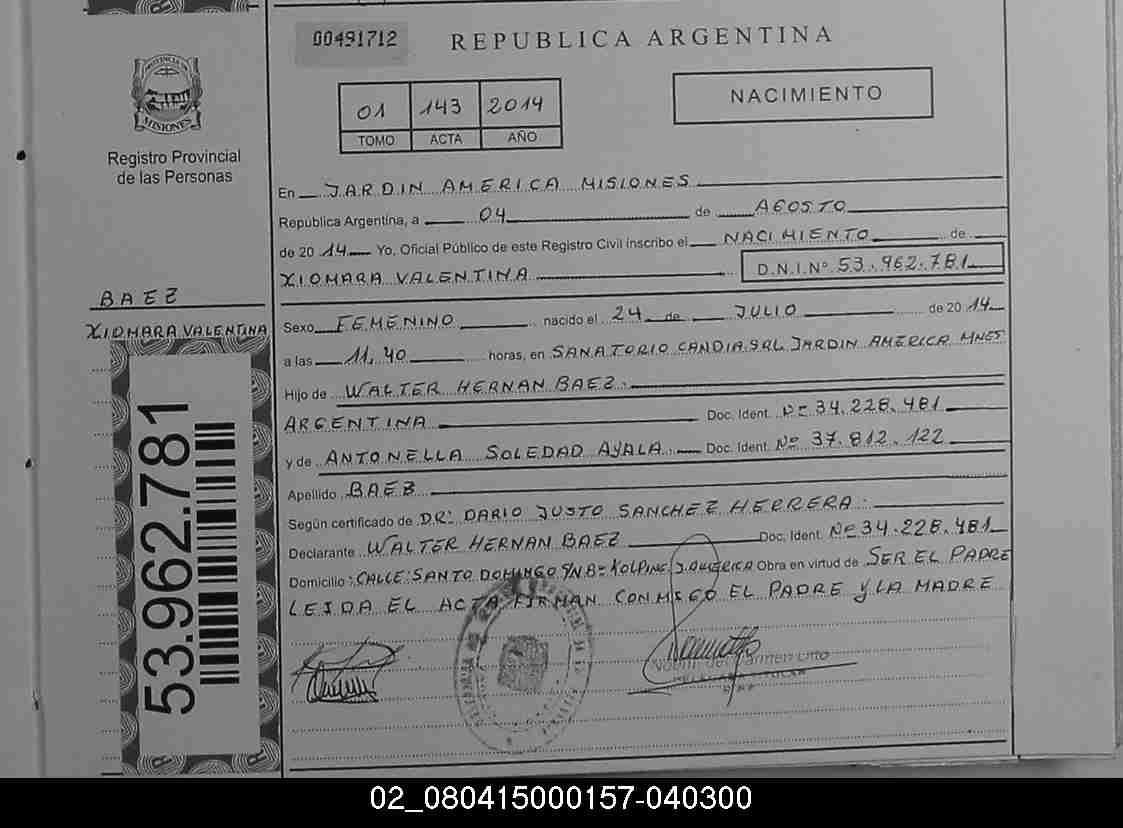 00491712
REPUBLICA ARGENTINA
PROVINCIA
MISIONES
Registro Provincial
de las Personas
01 143 2014
TOMO ACTA AÑO
NACIMIENTO
En JARDIN AMERICA MISIONES
República Argentina, a 04 de AGOSTO
de 2014 Yo, Oficial Público de este Registro Civil inscribo el NACIMIENTO de
XIOMARA VALENTINA D.N.I.Nº 53.962.781
BAEZ
XIOMARA VALENTINA
53.962.781
Sexo FEMENINO nacido el 24 de JULIO de 2014
a las 11,40 horas, en SANATORIO CANDIA SRL JARDIN AMERICA MNES
Hijo de WALTER HERNAN BAEZ.
ARGENTINA Doc. Ident. Nº 34.228.481
y de ANTONELLA SOLEDAD AYALA. Doc. Ident. Nº 37.812.122
Apellido BAEZ
Según certificado de DR: DARIO JUSTO SANCHEZ HERRERA.
Declarante WALTER HERNAN BAEZ Doc. Ident. Nº 34.228.481
Domicilio: CALLE: SANTO DOMINGO S/N Bº KOLPING J. AMERICA Obra en virtud de SER EL PADRE
LEIDA EL ACTA FIRMAN CONMIGO EL PADRE Y LA MADRE
02_080415000157-040300